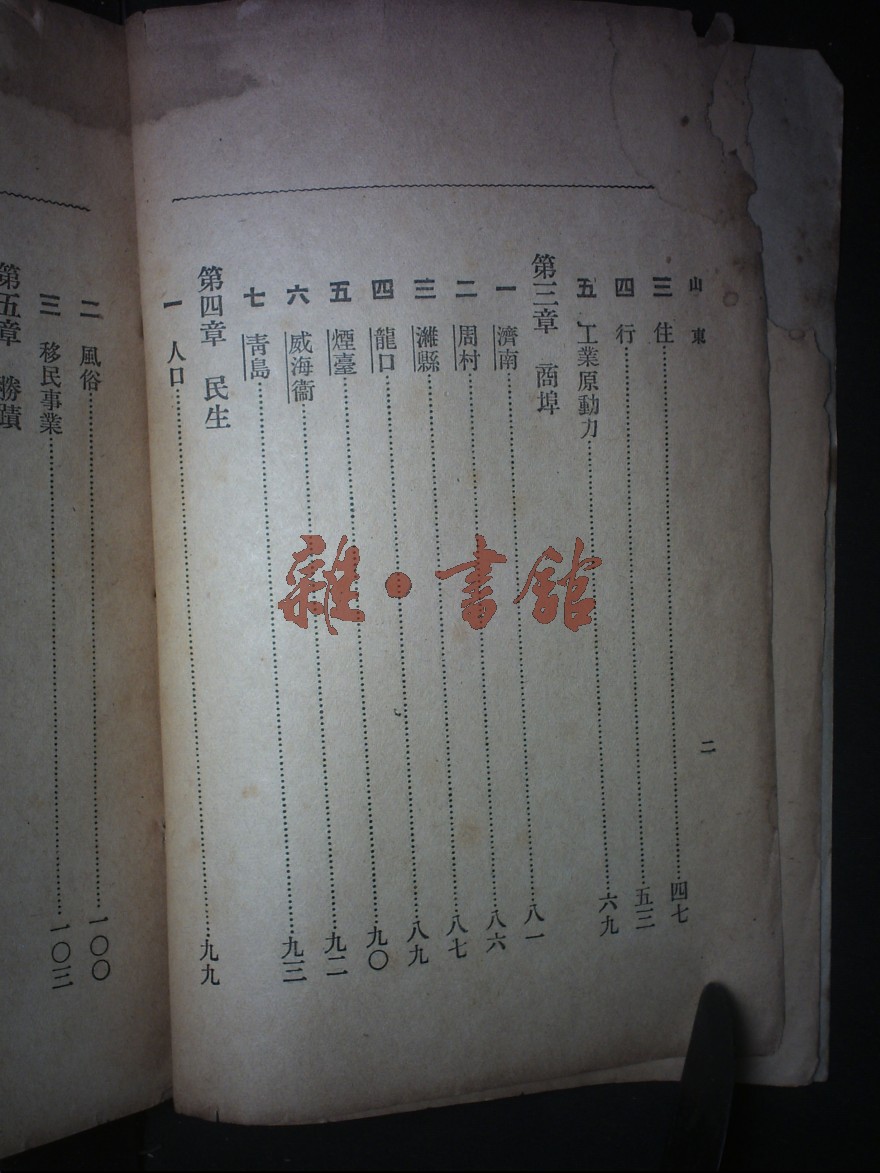 山東 二
三 住……四七
四 行……五三
五 工業原動力……六九
第三章 商埠
一 濟南……八一
二 周村……八六
三 濰縣……八七
四 龍口……八九
五 煙臺……九〇
六 威海衞……九二
七 青島……九三
第四章 民生
一 人口……九九
二 風俗……一〇〇
三 移民事業……一〇三
第五章 勝蹟
雜·書館